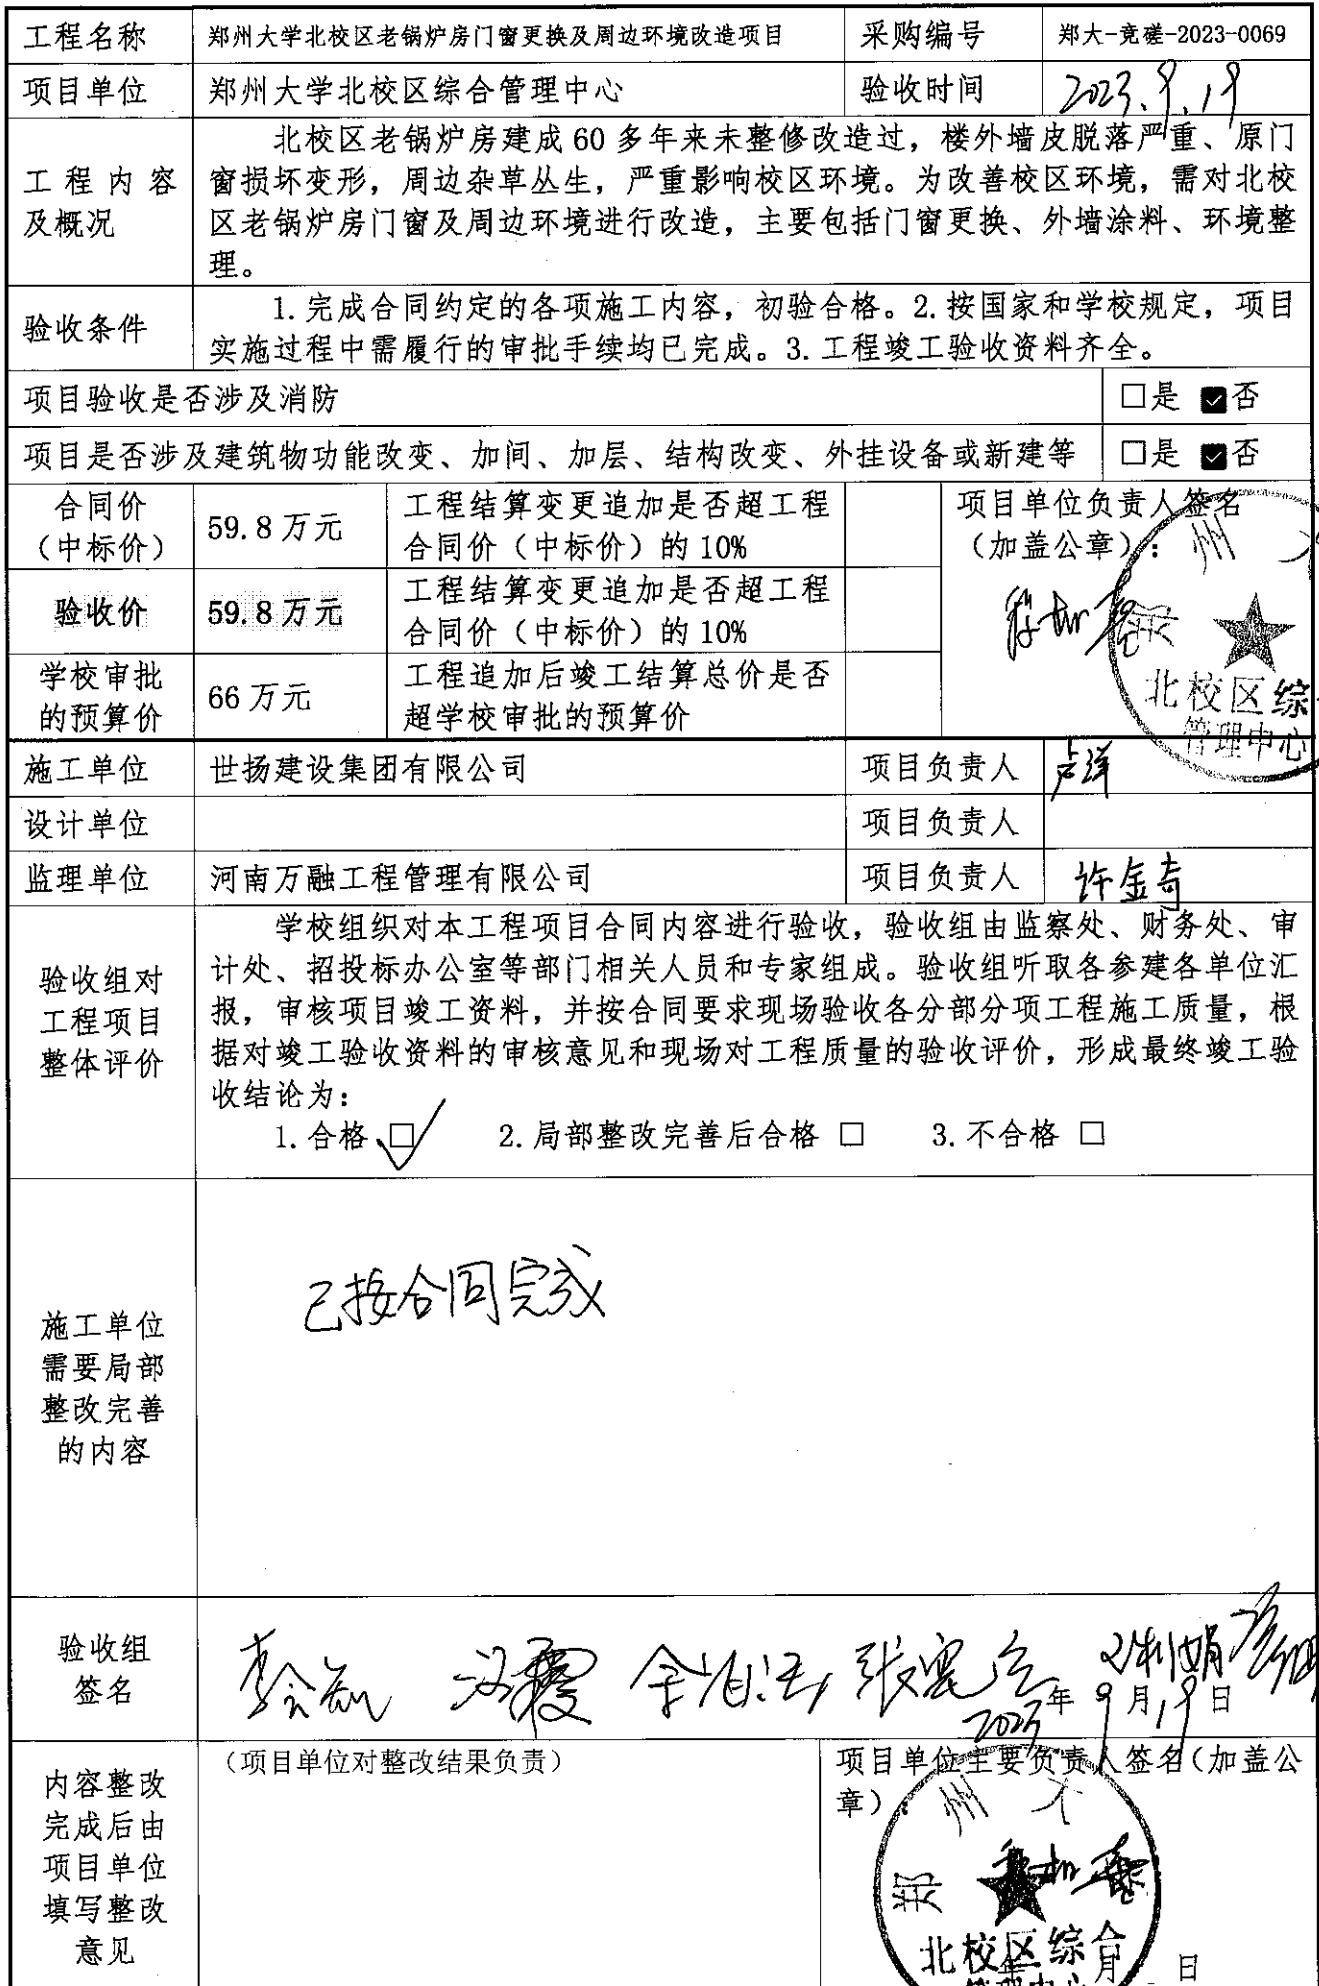 工程名称 郑州大学北校区老锅炉房门窗更换及周边环境改造项目 采购编号 郑大-竞磋-2023-0069
项目单位 郑州大学北校区综合管理中心 验收时间 2023.9.19
工程内容
及概况
北校区老锅炉房建成60多年来未整修改造过，楼外墙皮脱落严重、原门
窗损坏变形，周边杂草丛生，严重影响校区环境。为改善校区环境，需对北校
区老锅炉房门窗及周边环境进行改造，主要包括门窗更换、外墙涂料、环境整
理。
验收条件
1.完成合同约定的各项施工内容，初验合格。2.按国家和学校规定，项目
实施过程中需履行的审批手续均已完成。3.工程竣工验收资料齐全。
项目验收是否涉及消防 □是 ☑否
项目是否涉及建筑物功能改变、加间、加层、结构改变、外挂设备或新建等 □是 ☑否
合同价
（中标价）
59.8万元
工程结算变更追加是否超工程
合同价（中标价）的10%
项目单位负责人签名
（加盖公章）：
验收价
59.8万元
工程结算变更追加是否超工程
合同价（中标价）的10%
学校审批
的预算价
66万元
工程追加后竣工结算总价是否
超学校审批的预算价
郑州大
北校区综
管理中心
施工单位 世扬建设集团有限公司 项目负责人 卢洋
设计单位 项目负责人
监理单位 河南万融工程管理有限公司 项目负责人 许金奇
验收组对
工程项目
整体评价
学校组织对本工程项目合同内容进行验收，验收组由监察处、财务处、审
计处、招投标办公室等部门相关人员和专家组成。验收组听取各参建各单位汇
报，审核项目竣工资料，并按合同要求现场验收各分部分项工程施工质量，根
据对竣工验收资料的审核意见和现场对工程质量的验收评价，形成最终竣工验
收结论为：
1.合格 ☑ 2.局部整改完善后合格 □ 3.不合格 □
施工单位
需要局部
整改完善
的内容
已按合同完成
验收组
签名
2023年9月19日
内容整改
完成后由
项目单位
填写整改
意见
（项目单位对整改结果负责）
项目单位主要负责人签名（加盖公
章）：
郑州大
北校区综合
管理中心
年 月 日